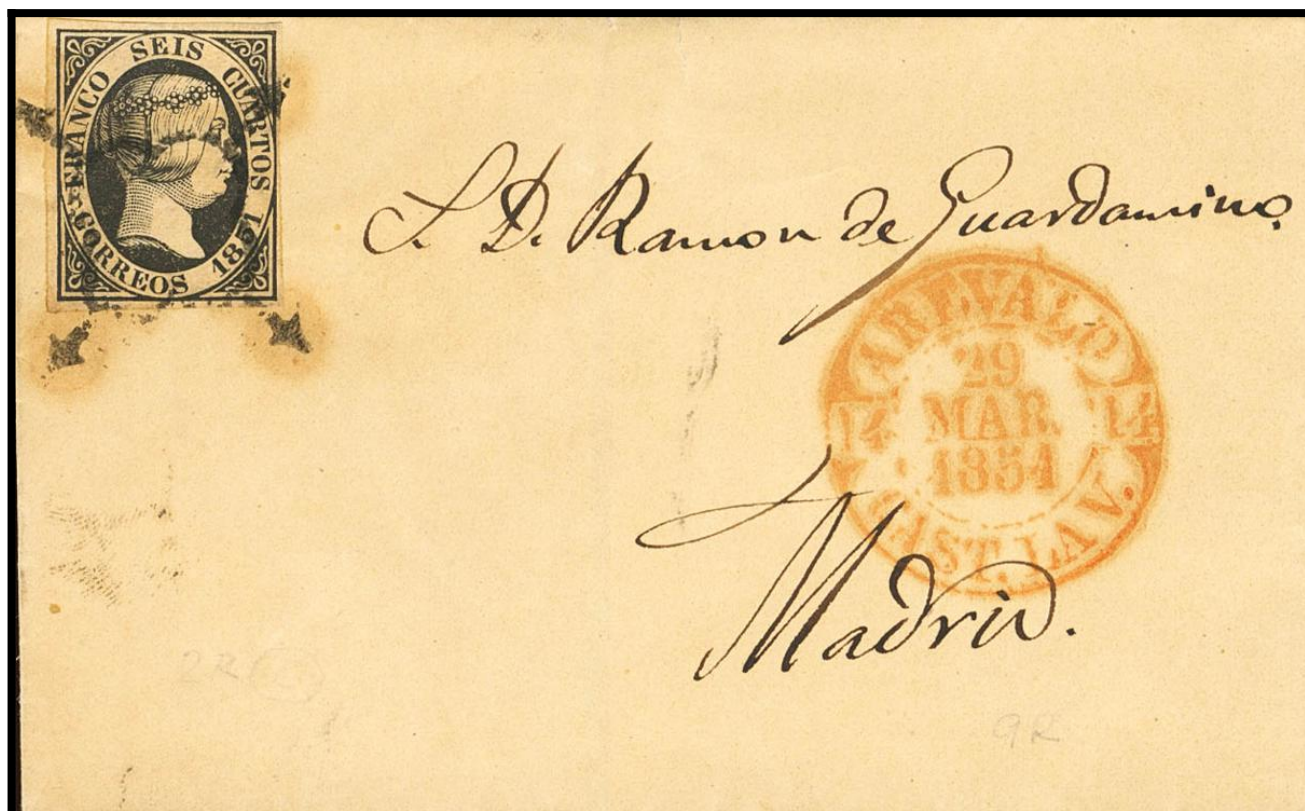 FRANCO SEIS CUARTOS
CORREOS 1851
S. D. Ramon de Guardamino
AREVALO
29
MAR.
1851
CAST. LA V.
Madrid.
9R